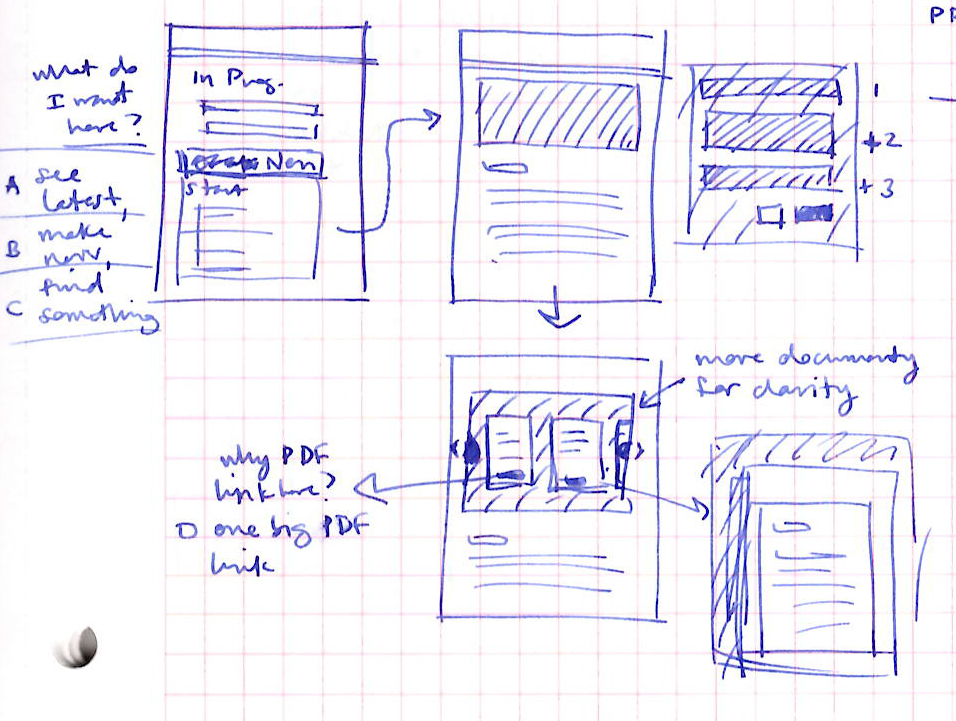 PR
what do
I want
here?
A see
latest,
B make
new,
C find
something
In Prog.
New
Start
1
+2
+3
more documenty
for clarity
why PDF
link here?
D one big PDF
link